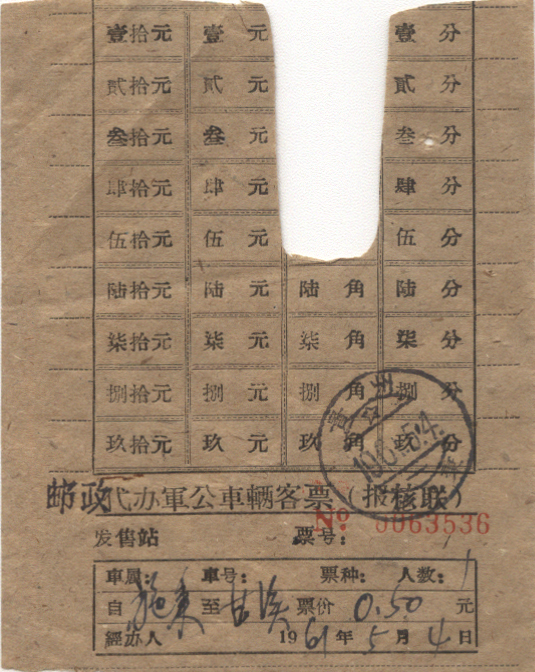 壹拾元 壹元 壹分
貳拾元 貳元 貳分
叁拾元 叁元 叁分
肆拾元 肆元 肆分
伍拾元 伍元 伍分
陆拾元 陆元 陆角 陆分
柒拾元 柒元 柒角 柒分
捌拾元 捌元 捌角 捌分
玖拾元 玖元 玖角 玖分
貴州
1961.5.4.
邮政代办軍公車輛客票（报核联）
No 0063536
发售站 票号：
車属： 車号： 票种： 人数：1
自施秉至甘溪 票价 0.50 元
經办人 1961年5月4日